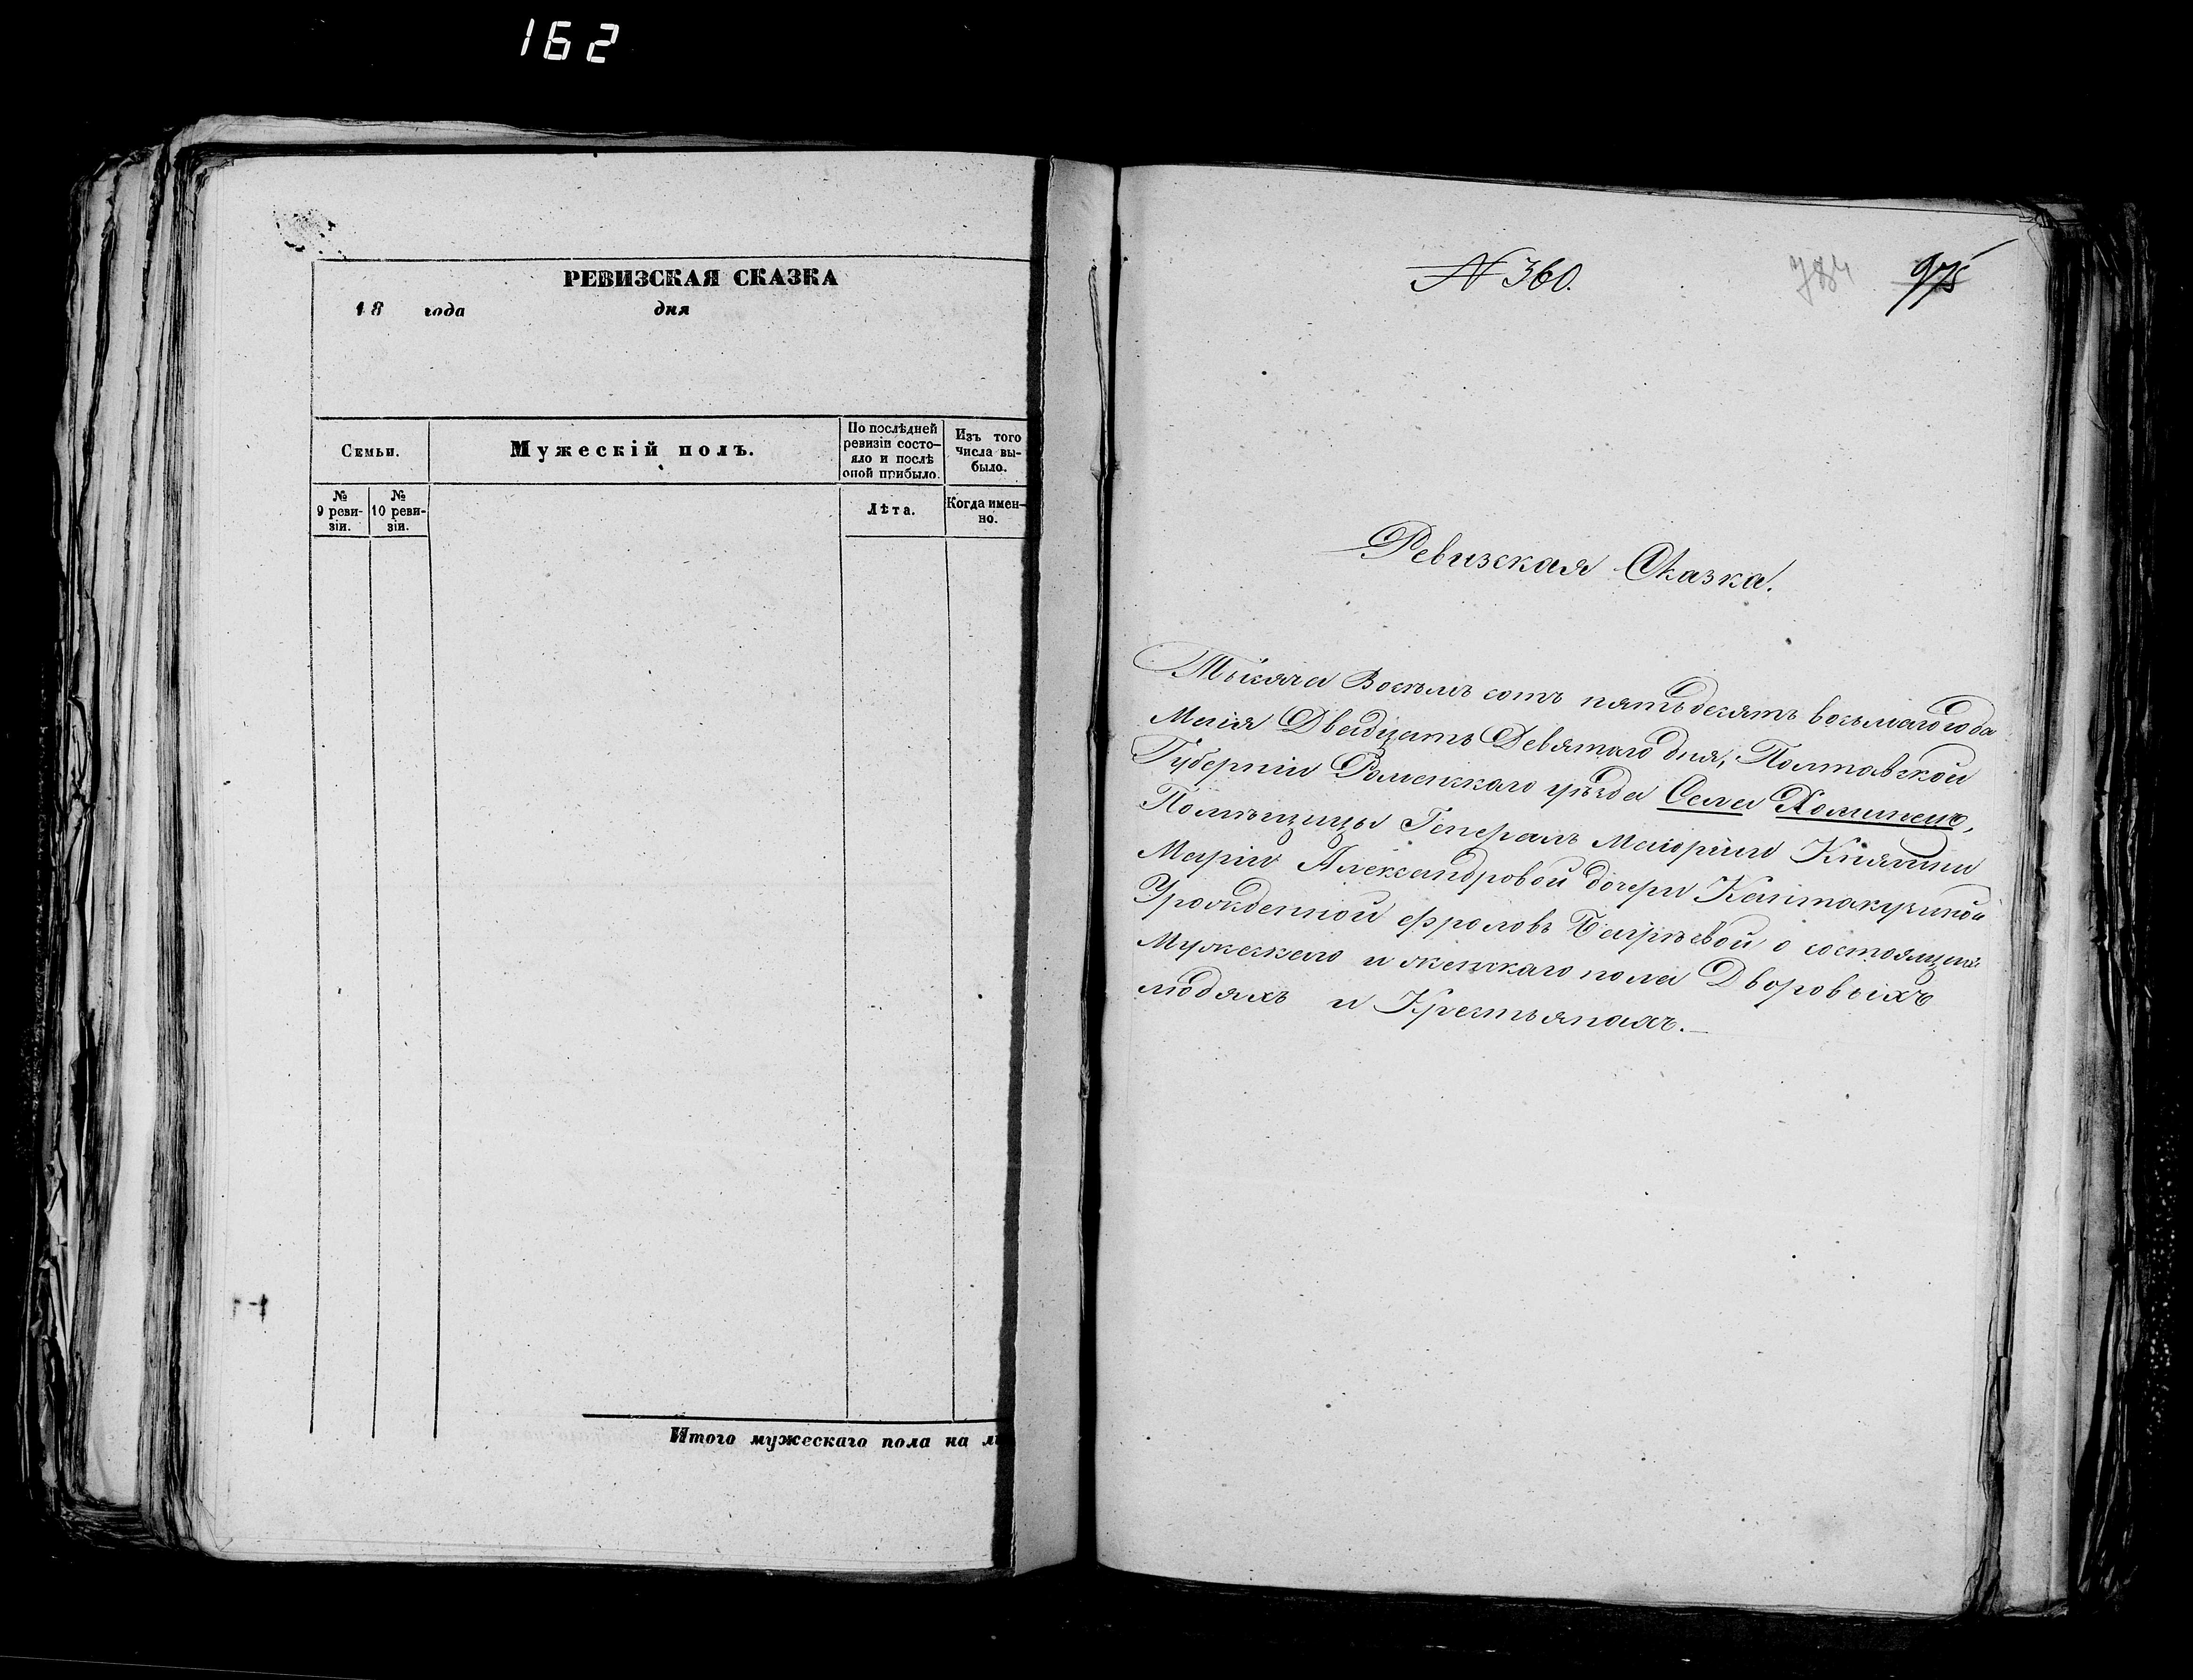 162
РЕВИЗСКАЯ СКАЗКА
18 года дня
Семьи.
Мужескій полъ.
По послѣдней
ревизіи состо-
яло и послѣ
оной прибыло.
Изъ того
числа вы-
было.
№
9 реви-
зіи.
№
10 реви-
зіи.
Лѣта.
Когда имен-
но.
Итого мужескаго пола на ли
N 360.
784
975
Ревизская Сказка.
Тысяча Восемь сотъ пятьдесятъ восьмаго года
Маія Двадцать Девятаго дня, Полтавской
Губерніи Роменскаго уѣзда Села Хоминецъ,
Помѣщицы Генералъ Маіорши Княгини
Маріи Александровой дочери Кантакузиной
Урожденной Фроловъ Багрѣевой о состоящихъ
Мужескаго и женскаго пола Дворовыхъ
людяхъ и Крестьянахъ.